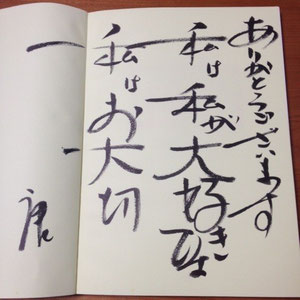 ありがとうございます
私は私が大好きひょ
私はお大切
一一唐